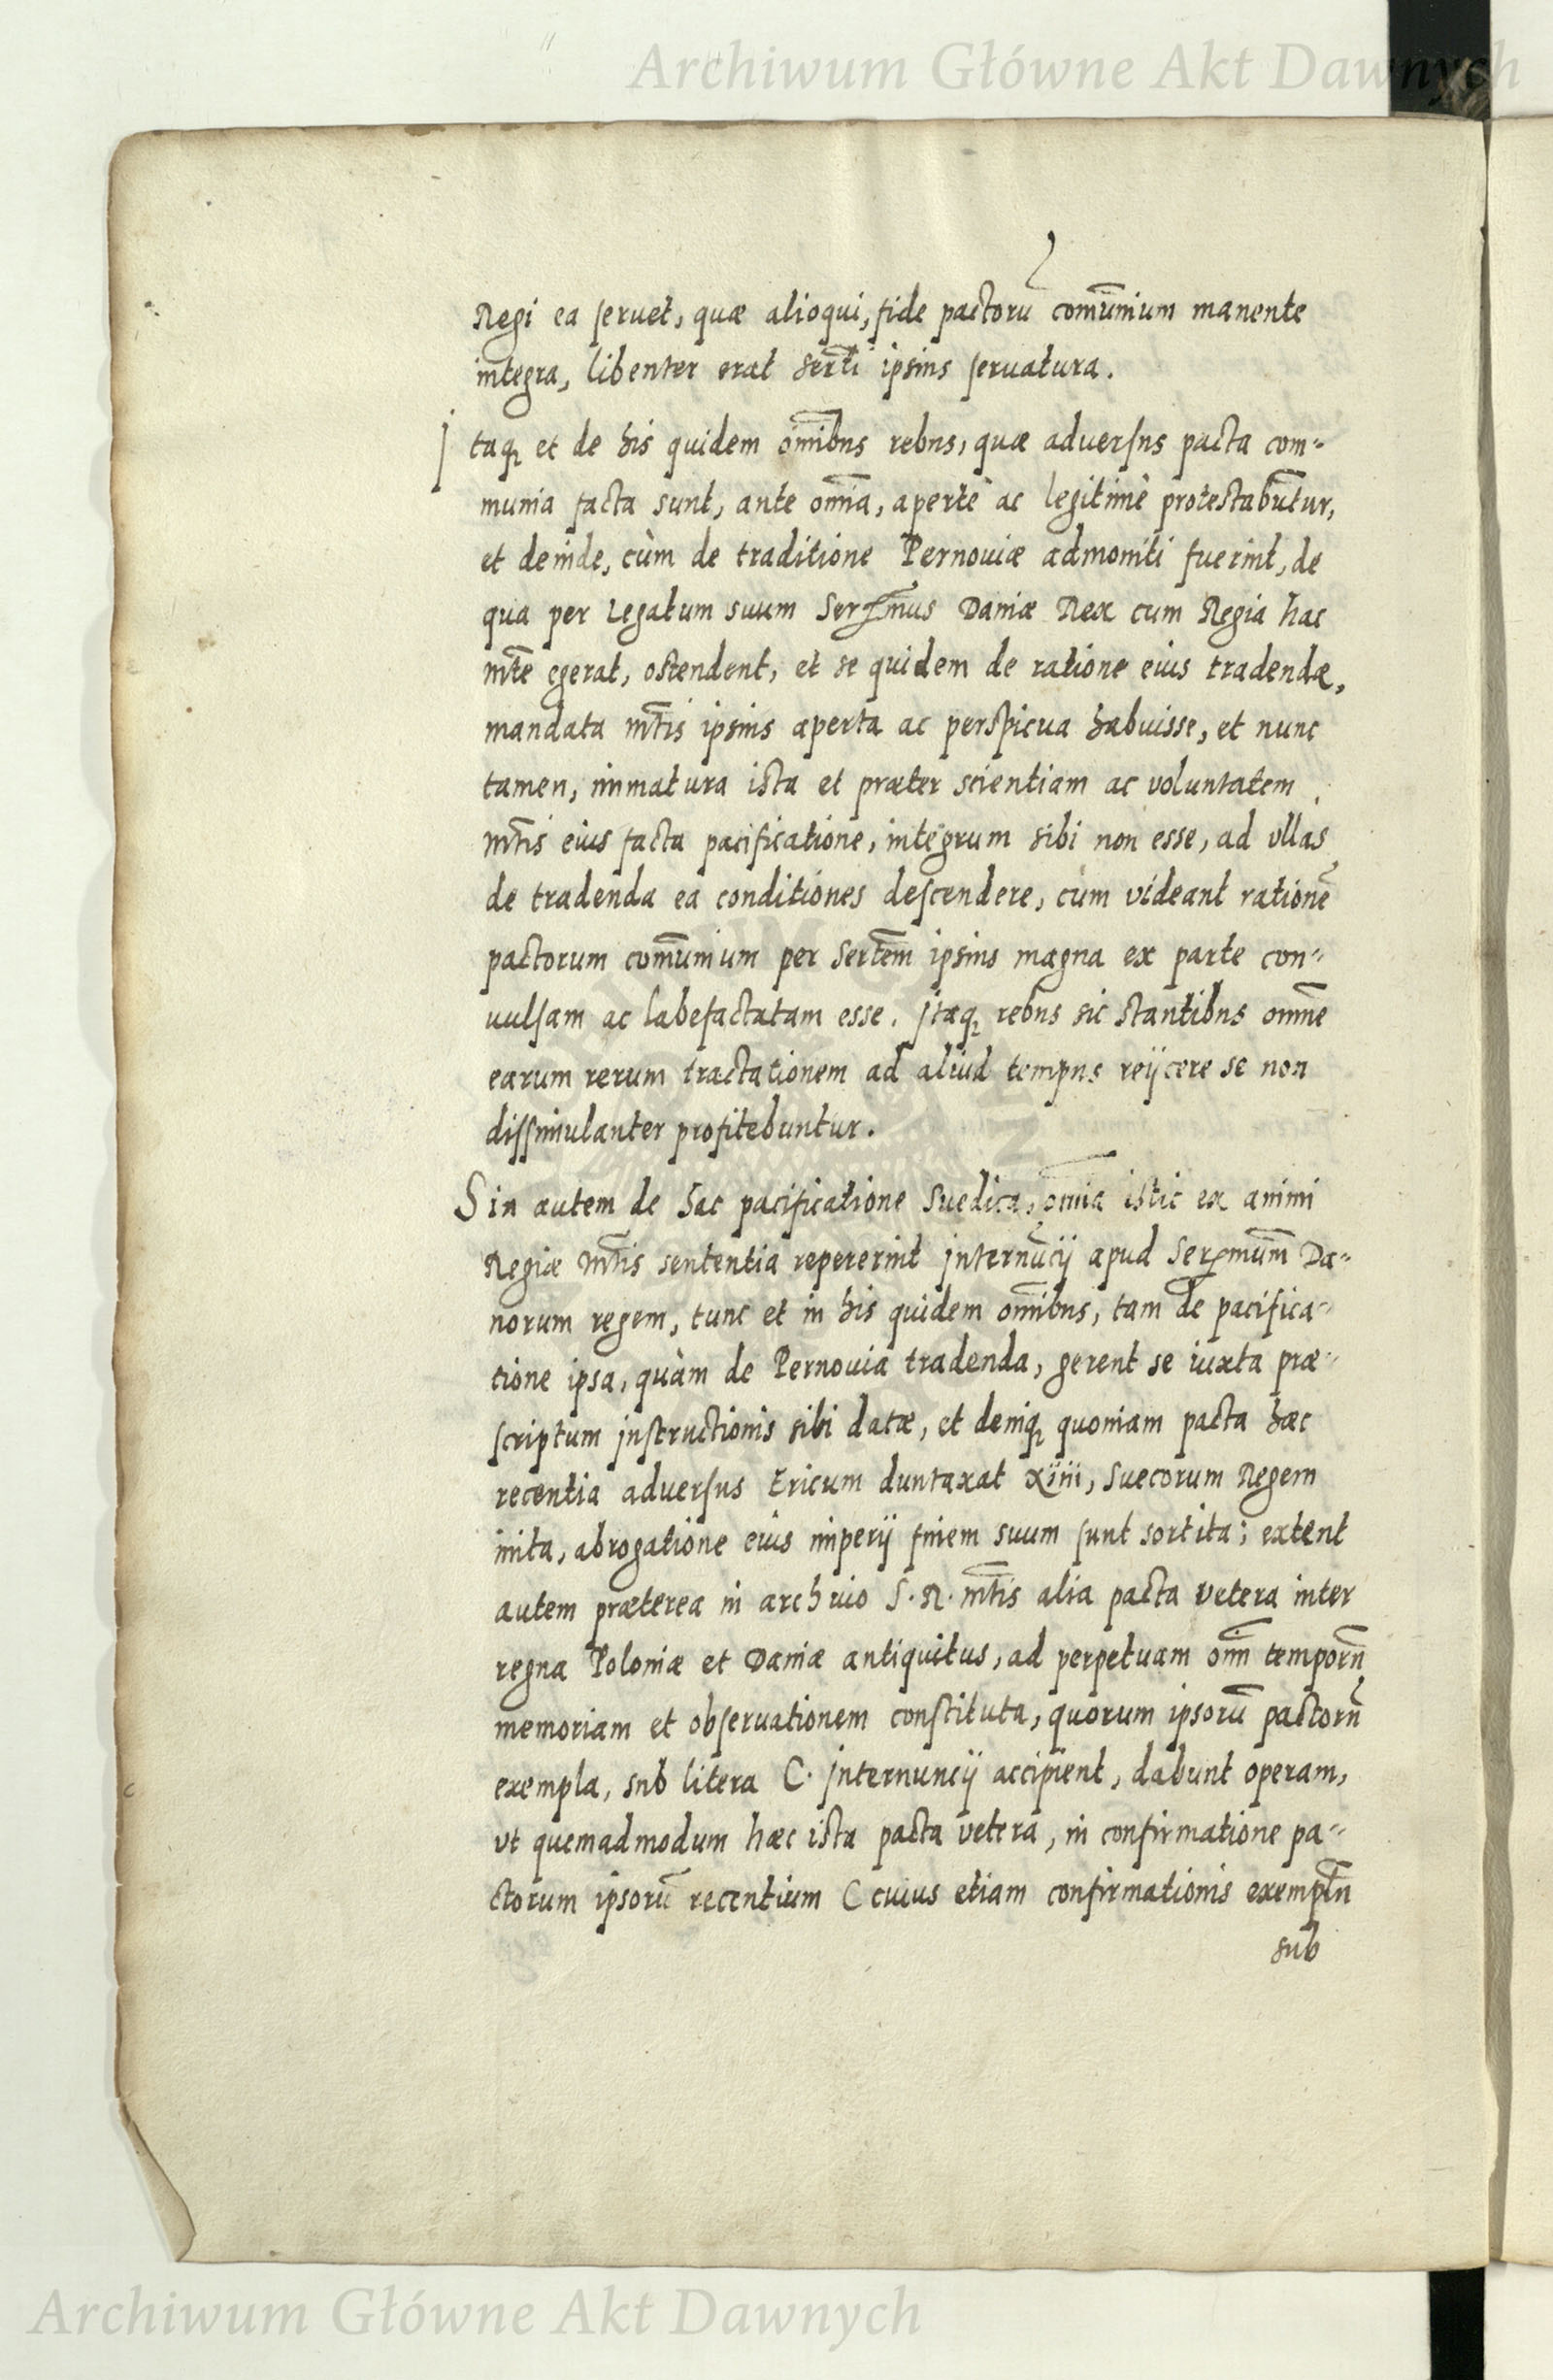 Archiwum Główne Akt Dawnych
Regi ea seruet, quæ alioqui, fide pactorū com̄unium manente
integra, libenter erat Serti ipsius seruatura.
Itaqꝫ et de his quidem om̄ibus rebus, quæ aduersus pacta com-
munia facta sunt, ante om̄ia, apertè ac legitimè protestabūtur,
et deinde, cùm de traditione Pernouiæ admoniti fuerint, de
qua per Legatum suum Sermus Daniæ Rex cum Regia hac
mte egerat, ostendent, et se quidem de ratione eius tradendæ,
mandata mtis ipsius aperta ac perspicua habuisse, et nunc
tamen, immatura ista et præter scientiam ac voluntatem
mtis eius facta pacificatione, integrum sibi non esse, ad vllas
de tradenda ea conditiones descendere, cùm videant rationē
pactorum com̄unium per Sertem ipsius magna ex parte con-
uulsam ac labefactatam esse. Itaqꝫ rebus sic stantibus omnē
earum rerum tractationem ad aliud tempus reijcere se non
dissimulanter profitebuntur.
Sin autem de hac pacificatione Suedica, om̄ia istic ex animi
Regiæ Mtis sententia repererint internūcij apud Sermum Da-
norum regem, tunc et in his quidem om̄ibus, tam de pacifica-
tione ipsa, quàm de Pernouia tradenda, gerent se iuxta præ-
scriptum instructionis sibi datæ, et deniqꝫ quoniam pacta hæc
recentia aduersus Ericum duntaxat xiiii, Suecorum Regem
inita, abrogatione eius imperij finem suum sunt sortita; extent
autem præterea in archiuio S. R. Mtis alia pacta vetera inter
regna Poloniæ et Daniæ antiquitus, ad perpetuam om̄i temporū
memoriam et obseruationem constituta, quorum ipsorū pactorū
exempla, sub litera C. internuncij accipient, dabunt operam,
vt quemadmodum hæc ista pacta vetera, in confirmatione pa-
ctorum ipsorū recentium (cuius etiam confirmationis exemplū
sub
Archiwum Główne Akt Dawnych